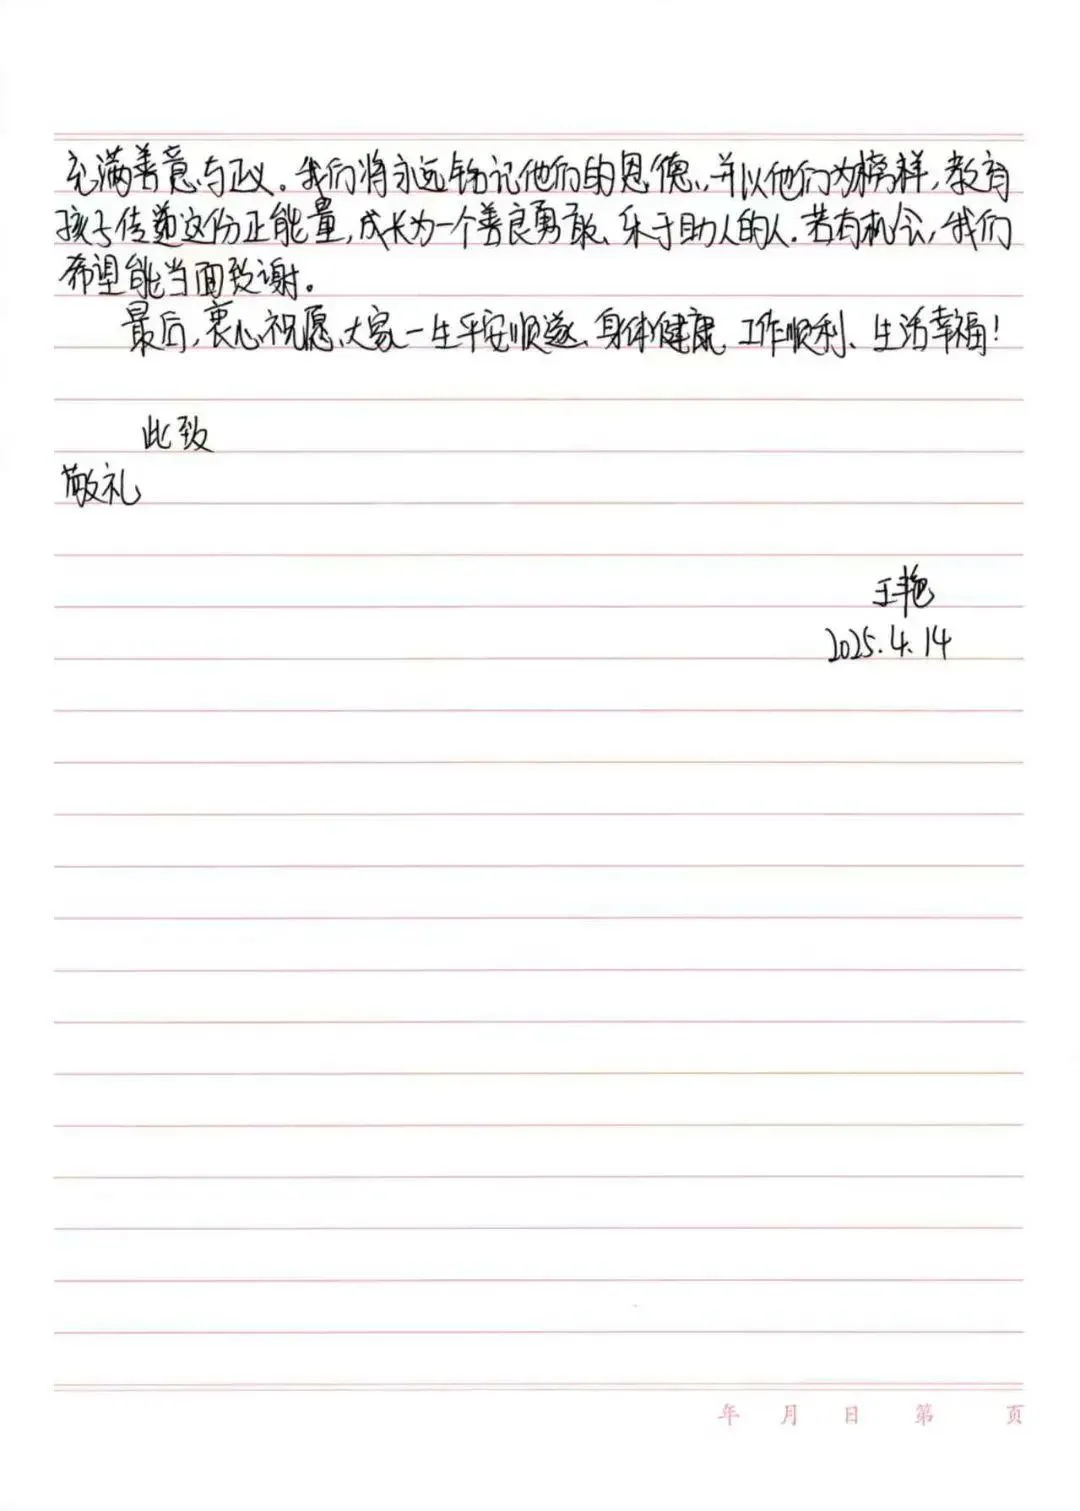 充满善意与正义。我们将永远铭记他们的恩德，并以他们为榜样，教育
孩子传递这份正能量，成长为一个善良勇敢、乐于助人的人。若有机会，我们
希望能当面致谢。
最后，衷心祝愿大家一生平安顺遂、身体健康、工作顺利、生活幸福！
此致
敬礼
王艳
2025.4.14
年 月 日 第 页